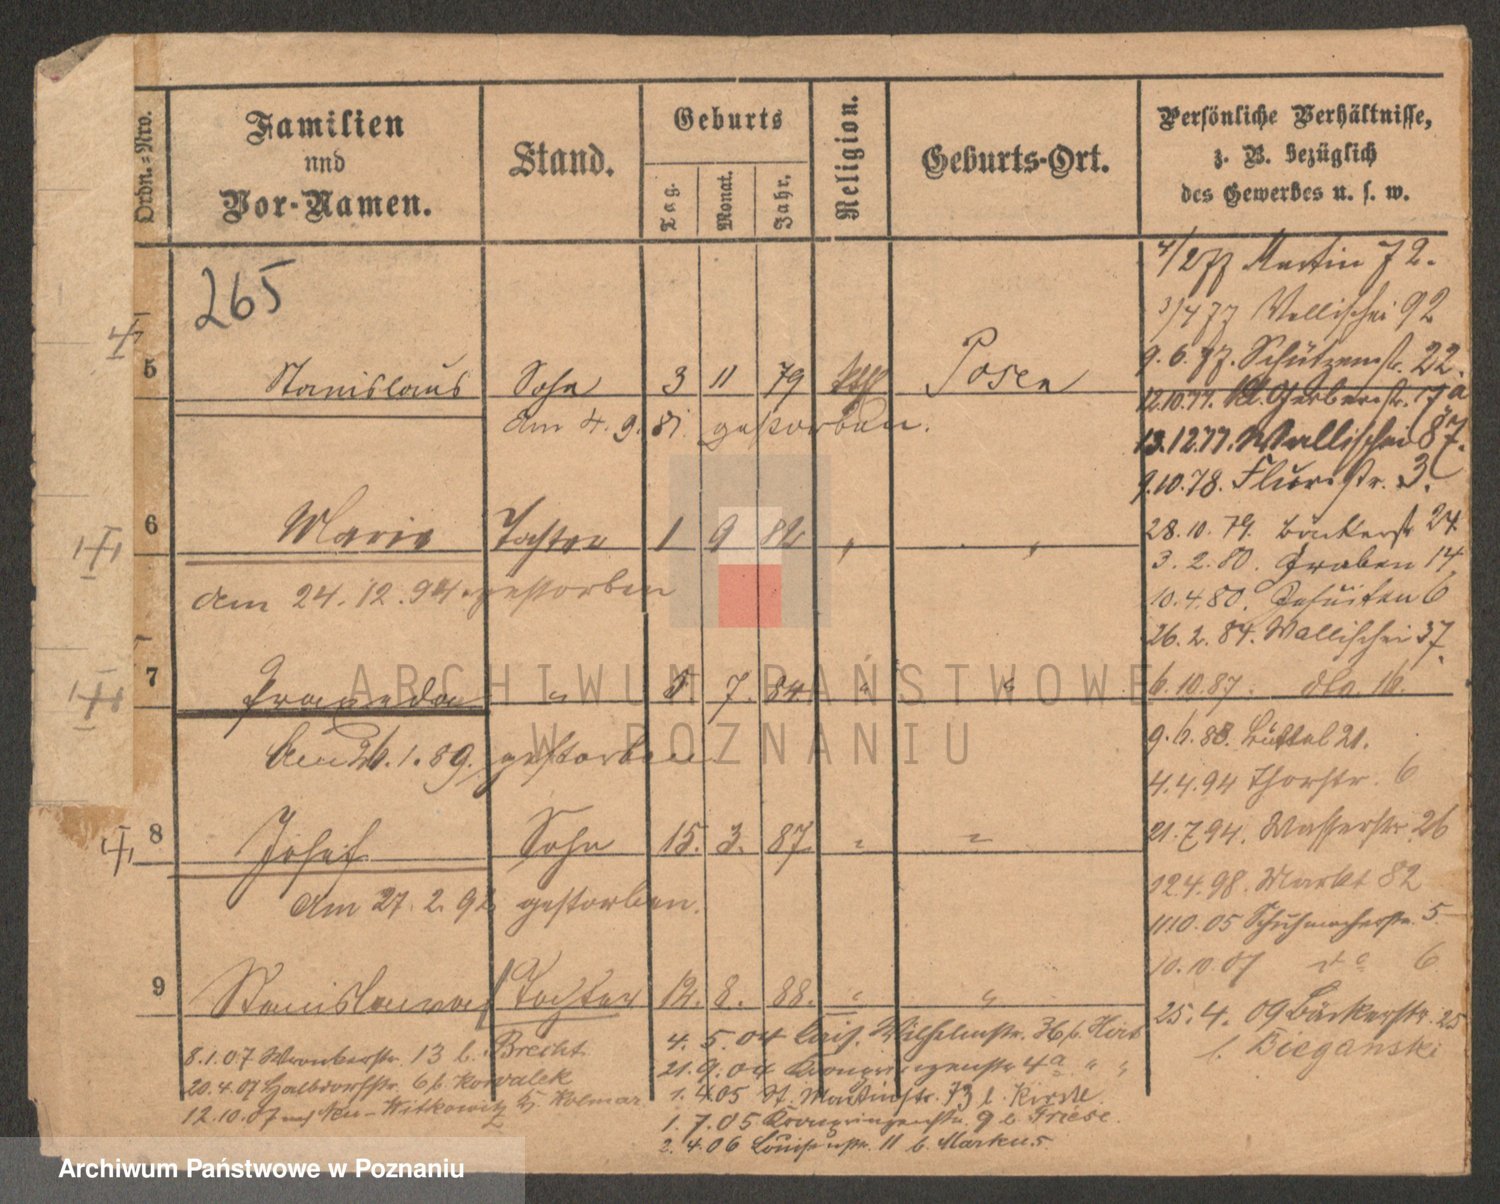 Ordn.-Nro.
Familien
und
Vor-Namen.
Stand.
Geburts
Tag.
Monat.
Jahr.
Religion.
Geburts-Ort.
Persönliche Verhältnisse,
z. B. bezüglich
des Gewerbes u. s. w.
265
5 Stanislaus Sohn 3 11 79 kath Posen
am 4. 9. 81. gestorben.
6 Marie Tochter 1 9 82 "
am 24. 12. 94. gestorben
7 Praxeda " 5 7. 84. " "
Am 26. 1. 89. gestorben
8 Josef Sohn 15. 3. 87 " "
am 27. 2. 92 gestorben.
9 Stanislawa Tochter 12. 8. 88. " "
4/2 77 Martin 72.
3/4 77 Wallischei 92
9. 6. 77. Schützenstr. 22.
12.10.77. Kl. Gerberstr. 17a
13.12.77. Wallischei 87.
9.10.78. Flurstr. 3.
28. 10. 79. Bäckerstr 24
3. 2. 80. Graben 14.
10. 4. 80. Jesuiten 6
26. 2. 84. Wallischei 37.
6. 10. 87. dto. 16.
9. 6. 88. Büttel 21.
4. 4. 94 Thorstr. 6
21. 7. 94. Wasserstr. 26
12 4. 98. Markt 82
1110. 05 Schuhmacherstr. 5
10. 10. 07 dto 6
25. 4. 09 Bäckerstr. 25
b. Bieganski
8. 1. 07 Wronkerstr. 13 b. Brecht
20. 4. 07 Halbdorfstr. 6 b. Kowalek
12. 10. 07 nach Neu-Witkowitz Kolmar
4. 5. 04 Kais. Wilhelmstr. b. Hirt
21. 9. 04 Kronprinzenstr 4a " "
1. 4. 05 St. Martinstr. 73 b. Kirste.
1. 7. 05 Kronprinzenstr. 9 b Friese.
2. 4. 06 Louisenstr. 11 b. Markus.
ARCHIWUM PAŃSTWOWE
W POZNANIU
Archiwum Państwowe w Poznaniu